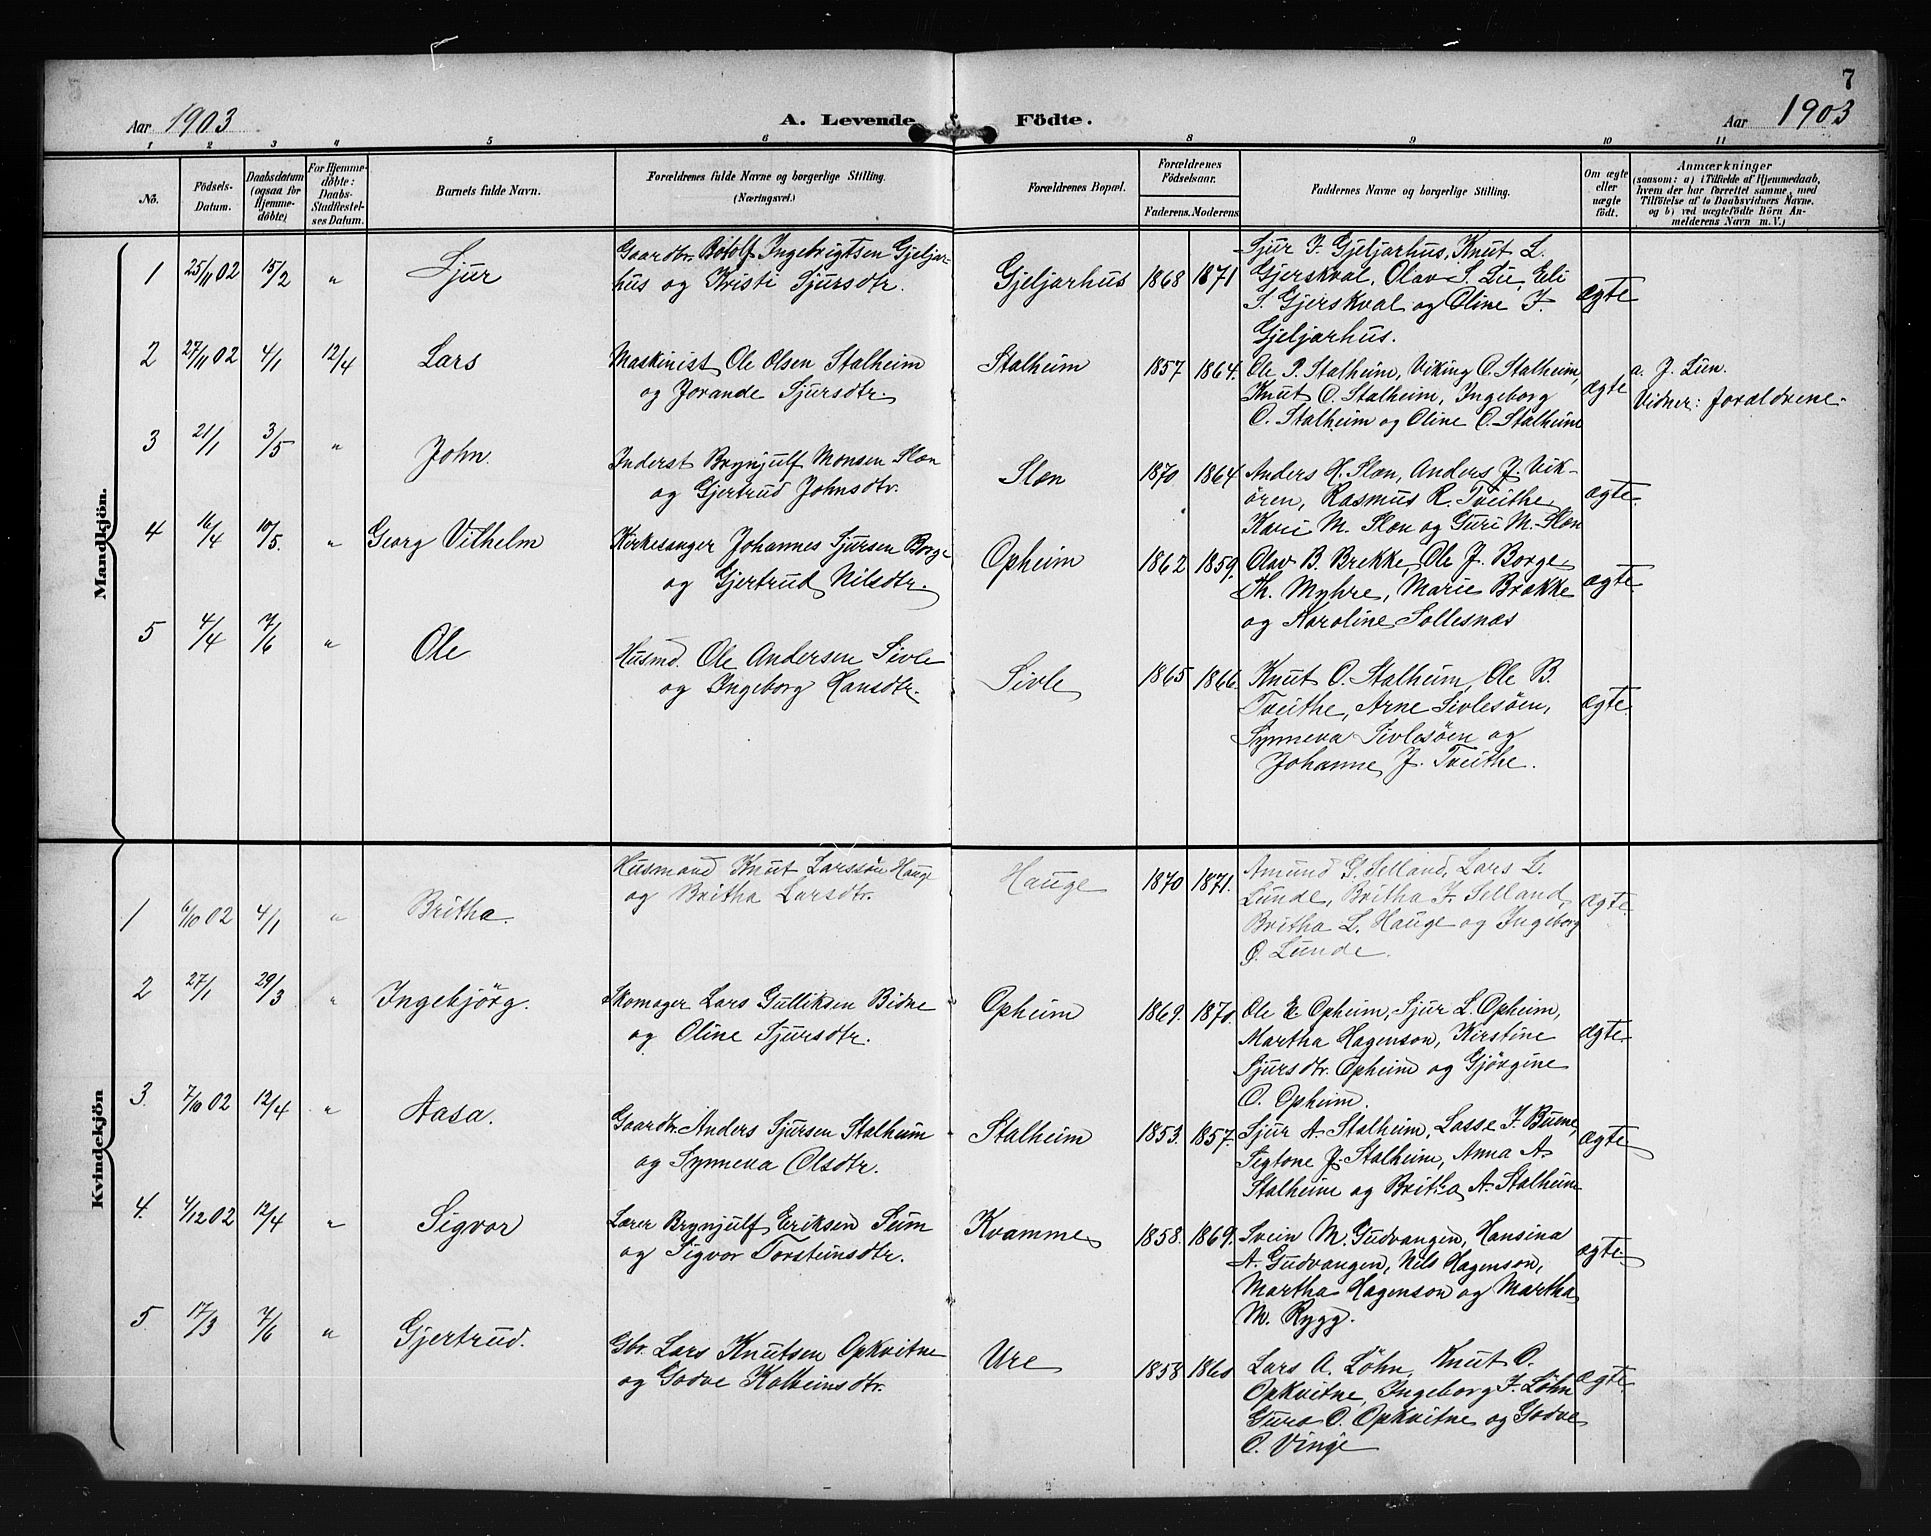 7
Aar 1903 A. Levende Födte. Aar 1903
1 2 3 4 5 6 8 9 10 11
No. Födsels-Datum. Daabsdatum (ogsaa for Hjemmedöbte) For Hjemmedöbte: Daabs-Stadfæstelses Datum. Barnets fulde Navn. Forældrenes fulde Navne og borgerlige Stilling. (Næringsvei.) Forældrenes Bopæl. Forældrenes Födselsaar. Faderens. Moderens. Faddernes Navne og borgerlige Stilling. Om ægte eller uægte födt. Anmærkninger (saasom: a) i Tilfælde af Hjemmedaab, hvem der har forrettet samme, med Tilföielse af to Daabsvidners Navne. og b) ved uægtefödte Börn Anmelderens Navn m. V.)
Mandkjön.
1 25/11 02 15/2 " Sjur Gaardbr. Botolf Ingebrigtsen Gjeljarhus og Kristi Sjursdtr. Gjeljarhus 1868 1871 Sjur I. Gjeljarhus, Knut L.
Gjerskval, Olav S. Lie, Eli
S. Gjerskval og Oline I.
Gjeljarhus. ægte
2 27/11 02 4/1 12/4 Lars Maskinist Ole Olsen Stalheim
og Jorande Sjursdtr. Stalheim 1857 1864. Ole P. Stalheim, Viking O. Stalheim,
Knut O. Stalheim, Ingeborg
O. Stalheim og Oline O. Stalheim ægte a. J. Lien.
Vidner: Forældrene.
3 21/1 3/5 " John. Inderst Brynjulf Monsen Slæn
og Gjertrud Johnsdtr. Slæn 1870 1864 Anders H. Slæn, Anders J. Vik-
ören, Rasmus R. Tveithe,
Kari M. Slæn og Guri M. Slæn ægte.
4 16/4 10/5. " Georg Vilhelm Kirkesanger Johannes Sjursen Borge
og Gjertrud Nilsdtr. Opheim 1862 1859. Olav B. Brekke, Ole J. Borge,
Th. Myhre, Marie Brække
og Karoline Sollesnæs ægte.
5 4/4 7/6 " Ole Husmd. Ole Andersen Sivle
og Ingeborg Hansdtr. Sivle 1865 1866. Knut O. Stalheim, Ole B.
Tveithe, Arne Sivlesöen,
Synneva Sivlesöen og
Johanne J. Tveithe. ægte.
Kvindekjön
1 6/10 02 4/1 " Britha. Husmand Knut Larssön Hauge
og Britha Larsdtr. Hauge 1870 1871. Amund G. Selland, Lars L.
Lunde, Britha I. Selland,
Britha L. Hauge og Ingeborg
O. Lunde. ægte.
2 27/1 29/3 " Ingebjörg. Skomager Lars Gulliksen Bidne
og Oline Sjursdtr. Opheim 1869. 1870. Ole E. Opheim, Sjur L. Opheim,
Martha Hagenson, Kirstine
Sjursdtr. Opheim og Gjörgine
O. Opheim. ægte.
3. 7/10 02 12/4 " Aasa. Gaardbr. Anders Sjursen Stalheim
og Synneva Olsdtr. Stalheim 1853. 1857. Sjur A. Stalheim, Lasse I. Bume,
Sigtone J. Stalheim, Anna A.
Stalheim og Britha A. Stalheim ægte
4. 4/12 02 12/4 " Sigvor Lærer Brynjulf Eriksen Seim
og Sigvor Torsteinsdtr. Kvamme 1858. 1869. Svein M. Gudvangen, Hansina
A. Gudvangen, Nils Hagenson,
Martha Hagenson og Martha
M. Rygg. ægte
5. 17/3 7/6 " Gjertrud. Gbr. Lars Knutsen Opkvitne
og Godve Kolbeinsdtr. Ure 1858 1860 Lars A. Löhn, Knut O.
Opkvitne, Ingeborg I. Löhn
Guro O. Opkvitne og Godve
O. Vinje ægte.